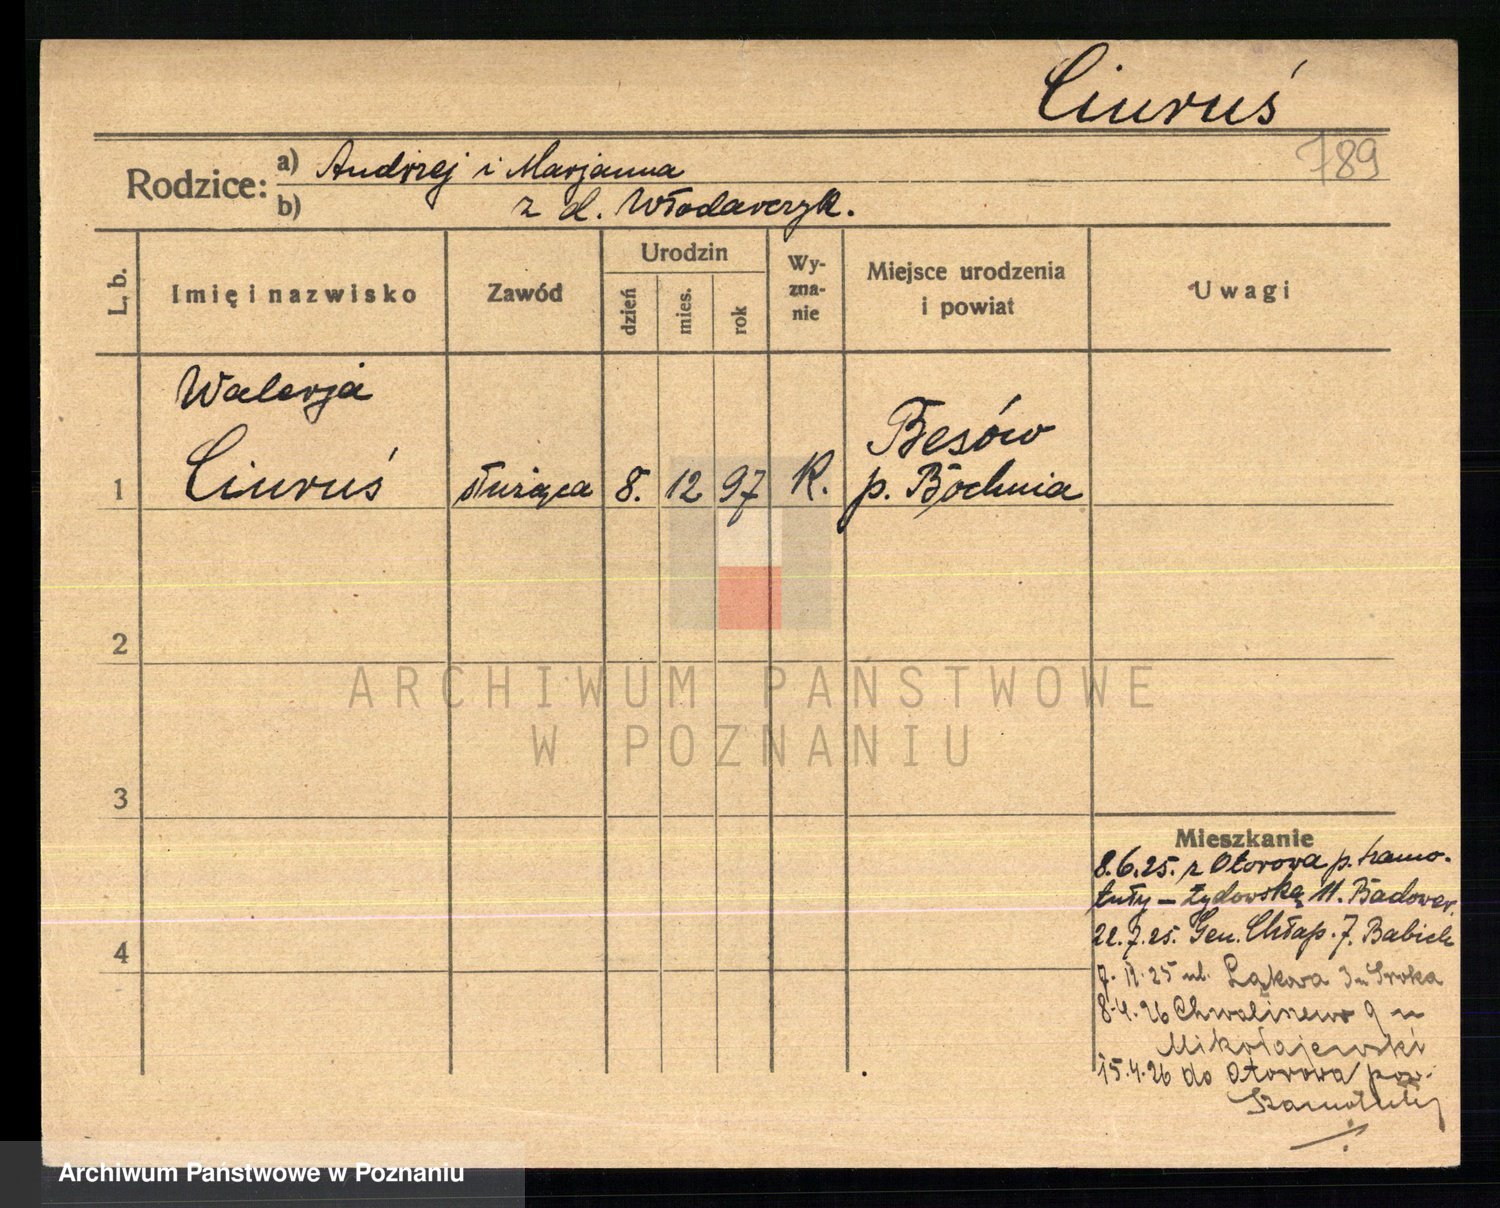 Ciuruś
789
Rodzice: a) Andrzej i Marjanna
b) z d. Włodarczyk.
L. b.
Imię i nazwisko
Zawód
Urodzin
dzień
mies.
rok
Wy-
zna-
nie
Miejsce urodzenia
i powiat
Uwagi
Walerja
1 Ciuruś służąca 8. 12 97 K. Besów
p. Bochnia
2
3
4
ARCHIWUM PAŃSTWOWE
W POZNANIU
Mieszkanie
8.6.25. z Otorowa p. Szamo-
tuły – Żydowska 11. Badower.
22.7.25. Gen. Chłap. 7. Babich
7.11.25 ul. Łąkowa 3 u Sroka
8.4.26 Chwaliszewo 9 u
Mikołajewski
15.4.26 do Otorowa pow.
Szamotuły
Archiwum Państwowe w Poznaniu